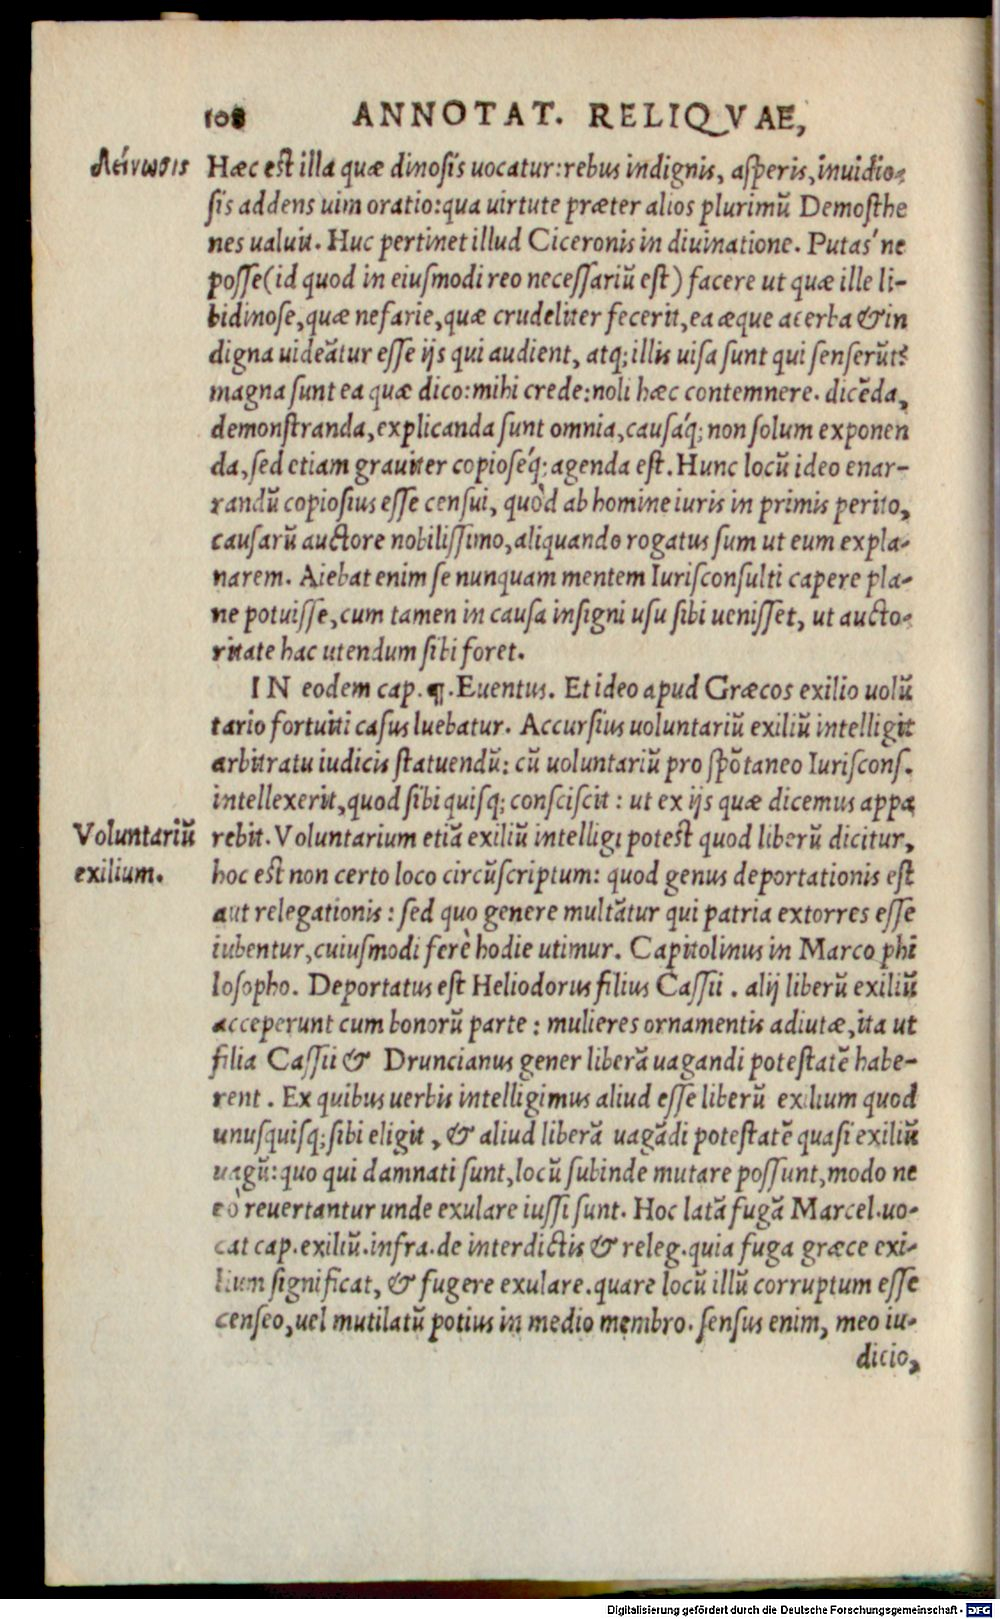 108 ANNOTAT. RELIQVAE,
δείνωσις Hæc est illa quæ dinosis uocatur: rebus indignis, asperis, inuidio-
sis addens uim oratio: qua uirtute præter alios plurimũ Demosthe
nes ualuit. Huc pertinet illud Ciceronis in diuinatione. Putas'ne
posse (id quod in eiusmodi reo necessariũ est) facere ut quæ ille li-
bidinose, quæ nefarie, quæ crudeliter fecerit, ea æque acerba & in
digna uideãtur esse ijs qui audient, atq; illis uisa sunt qui senserũt?
magna sunt ea quæ dico: mihi crede: noli hæc contemnere. dicẽda,
demonstranda, explicanda sunt omnia, causáq; non solum exponen
da, sed etiam grauiter copioséq; agenda est. Hunc locũ ideo enar-
randũ copiosius esse censui, quòd ab homine iuris in primis perito,
causarũ auctore nobilissimo, aliquando rogatus sum ut eum expla-
narem. Aiebat enim se nunquam mentem Iurisconsulti capere pla-
ne potuisse, cum tamen in causa insigni usu sibi uenisset, ut aucto-
ritate hac utendum sibi foret.
IN eodem cap. ¶. Euentus. Et ideo apud Græcos exilio uolũ
tario fortuiti casus luebatur. Accursius uoluntariũ exiliũ intelligit
arbitratu iudicis statuendũ: cũ uoluntariũ pro spõtaneo Iuriscons.
intellexerit, quod sibi quisq; consciscit: ut ex ijs quæ dicemus appa
Voluntariũ rebit. Voluntarium etiã exiliũ intelligi potest quod liberũ dicitur,
exilium. hoc est non certo loco circũscriptum: quod genus deportationis est
aut relegationis: sed quo genere multãtur qui patria extorres esse
iubentur, cuiusmodi ferè hodie utimur. Capitolinus in Marco phi
losopho. Deportatus est Heliodorus filius Cassii. alij liberũ exiliũ
acceperunt cum bonorũ parte: mulieres ornamentis adiutæ, ita ut
filia Cassii & Druncianus gener liberã uagandi potestatẽ habe-
rent. Ex quibus uerbis intelligimus aliud esse liberũ exilium quod
unusquisq; sibi eligit, & aliud liberã uagãdi potestatẽ quasi exiliũ
uagũ: quo qui damnati sunt, locũ subinde mutare possunt, modo ne
eò reuertantur unde exulare iussi sunt. Hoc latã fugã Marcel. uo-
cat cap. exiliũ. infra. de interdictis & releg. quia fuga græce exi-
lium significat, & fugere exulare. quare locũ illũ corruptum esse
censeo, uel mutilatũ potius in medio membro. sensus enim, meo iu-
dicio,
Digitalisierung gefördert durch die Deutsche Forschungsgemeinschaft - DFG